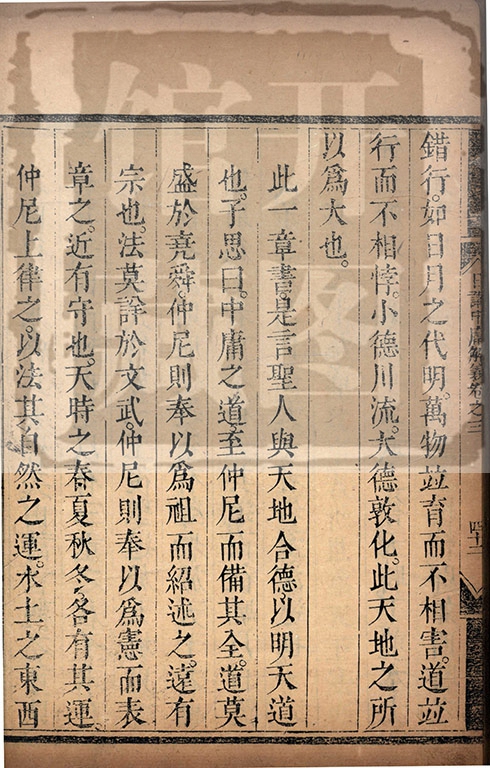 錯行。如日月之代明。萬物竝育而不相害。道竝
行而不相悖。小德川流。大德敦化。此天地之所
以爲大也。
此一章書。是言聖人與天地合德以明天道
也。子思曰。中庸之道。至仲尼而備其全。道莫
盛於堯舜。仲尼則奉以爲祖而紹述之。遠有
宗也。法莫詳於文武。仲尼則奉以爲憲而表
章之。近有守也。天時之春夏秋冬。各有其運。
仲尼上律之。以法其自然之運。水土之東西